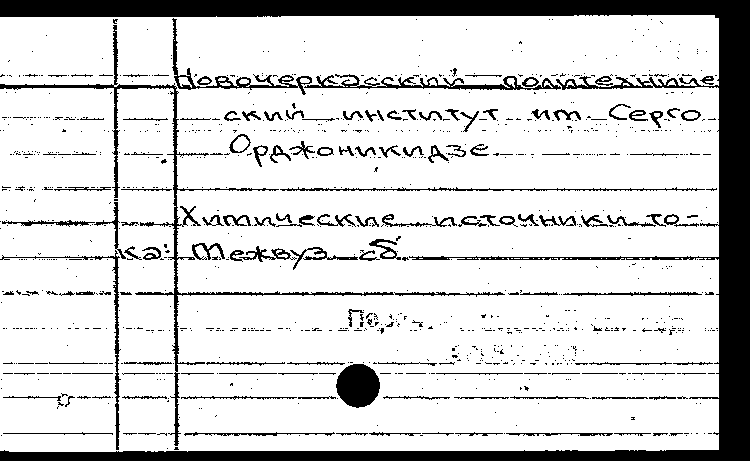 Новочеркасский политехниче-
ский институт им. Серго
Орджоникидзе.
Химические источники то-
ка: Межвуз. сб.